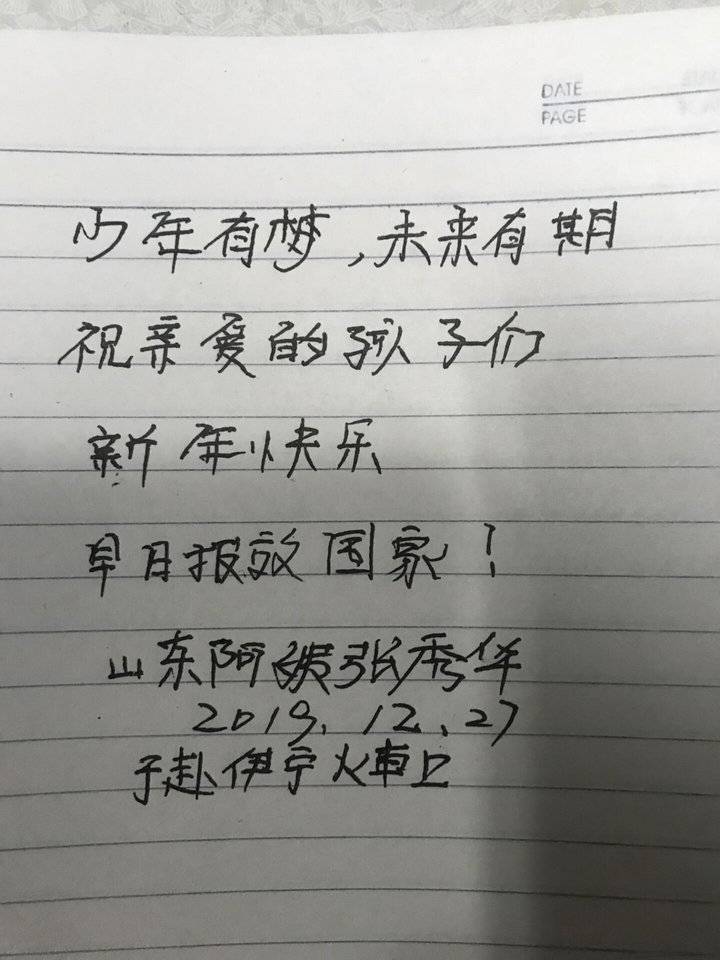 DATE
PAGE
少年有梦，未来有期
祝亲爱的孩子们
新年快乐
早日报效国家！
山东阿张秀华
2019.12.27
于赴伊宁火車上